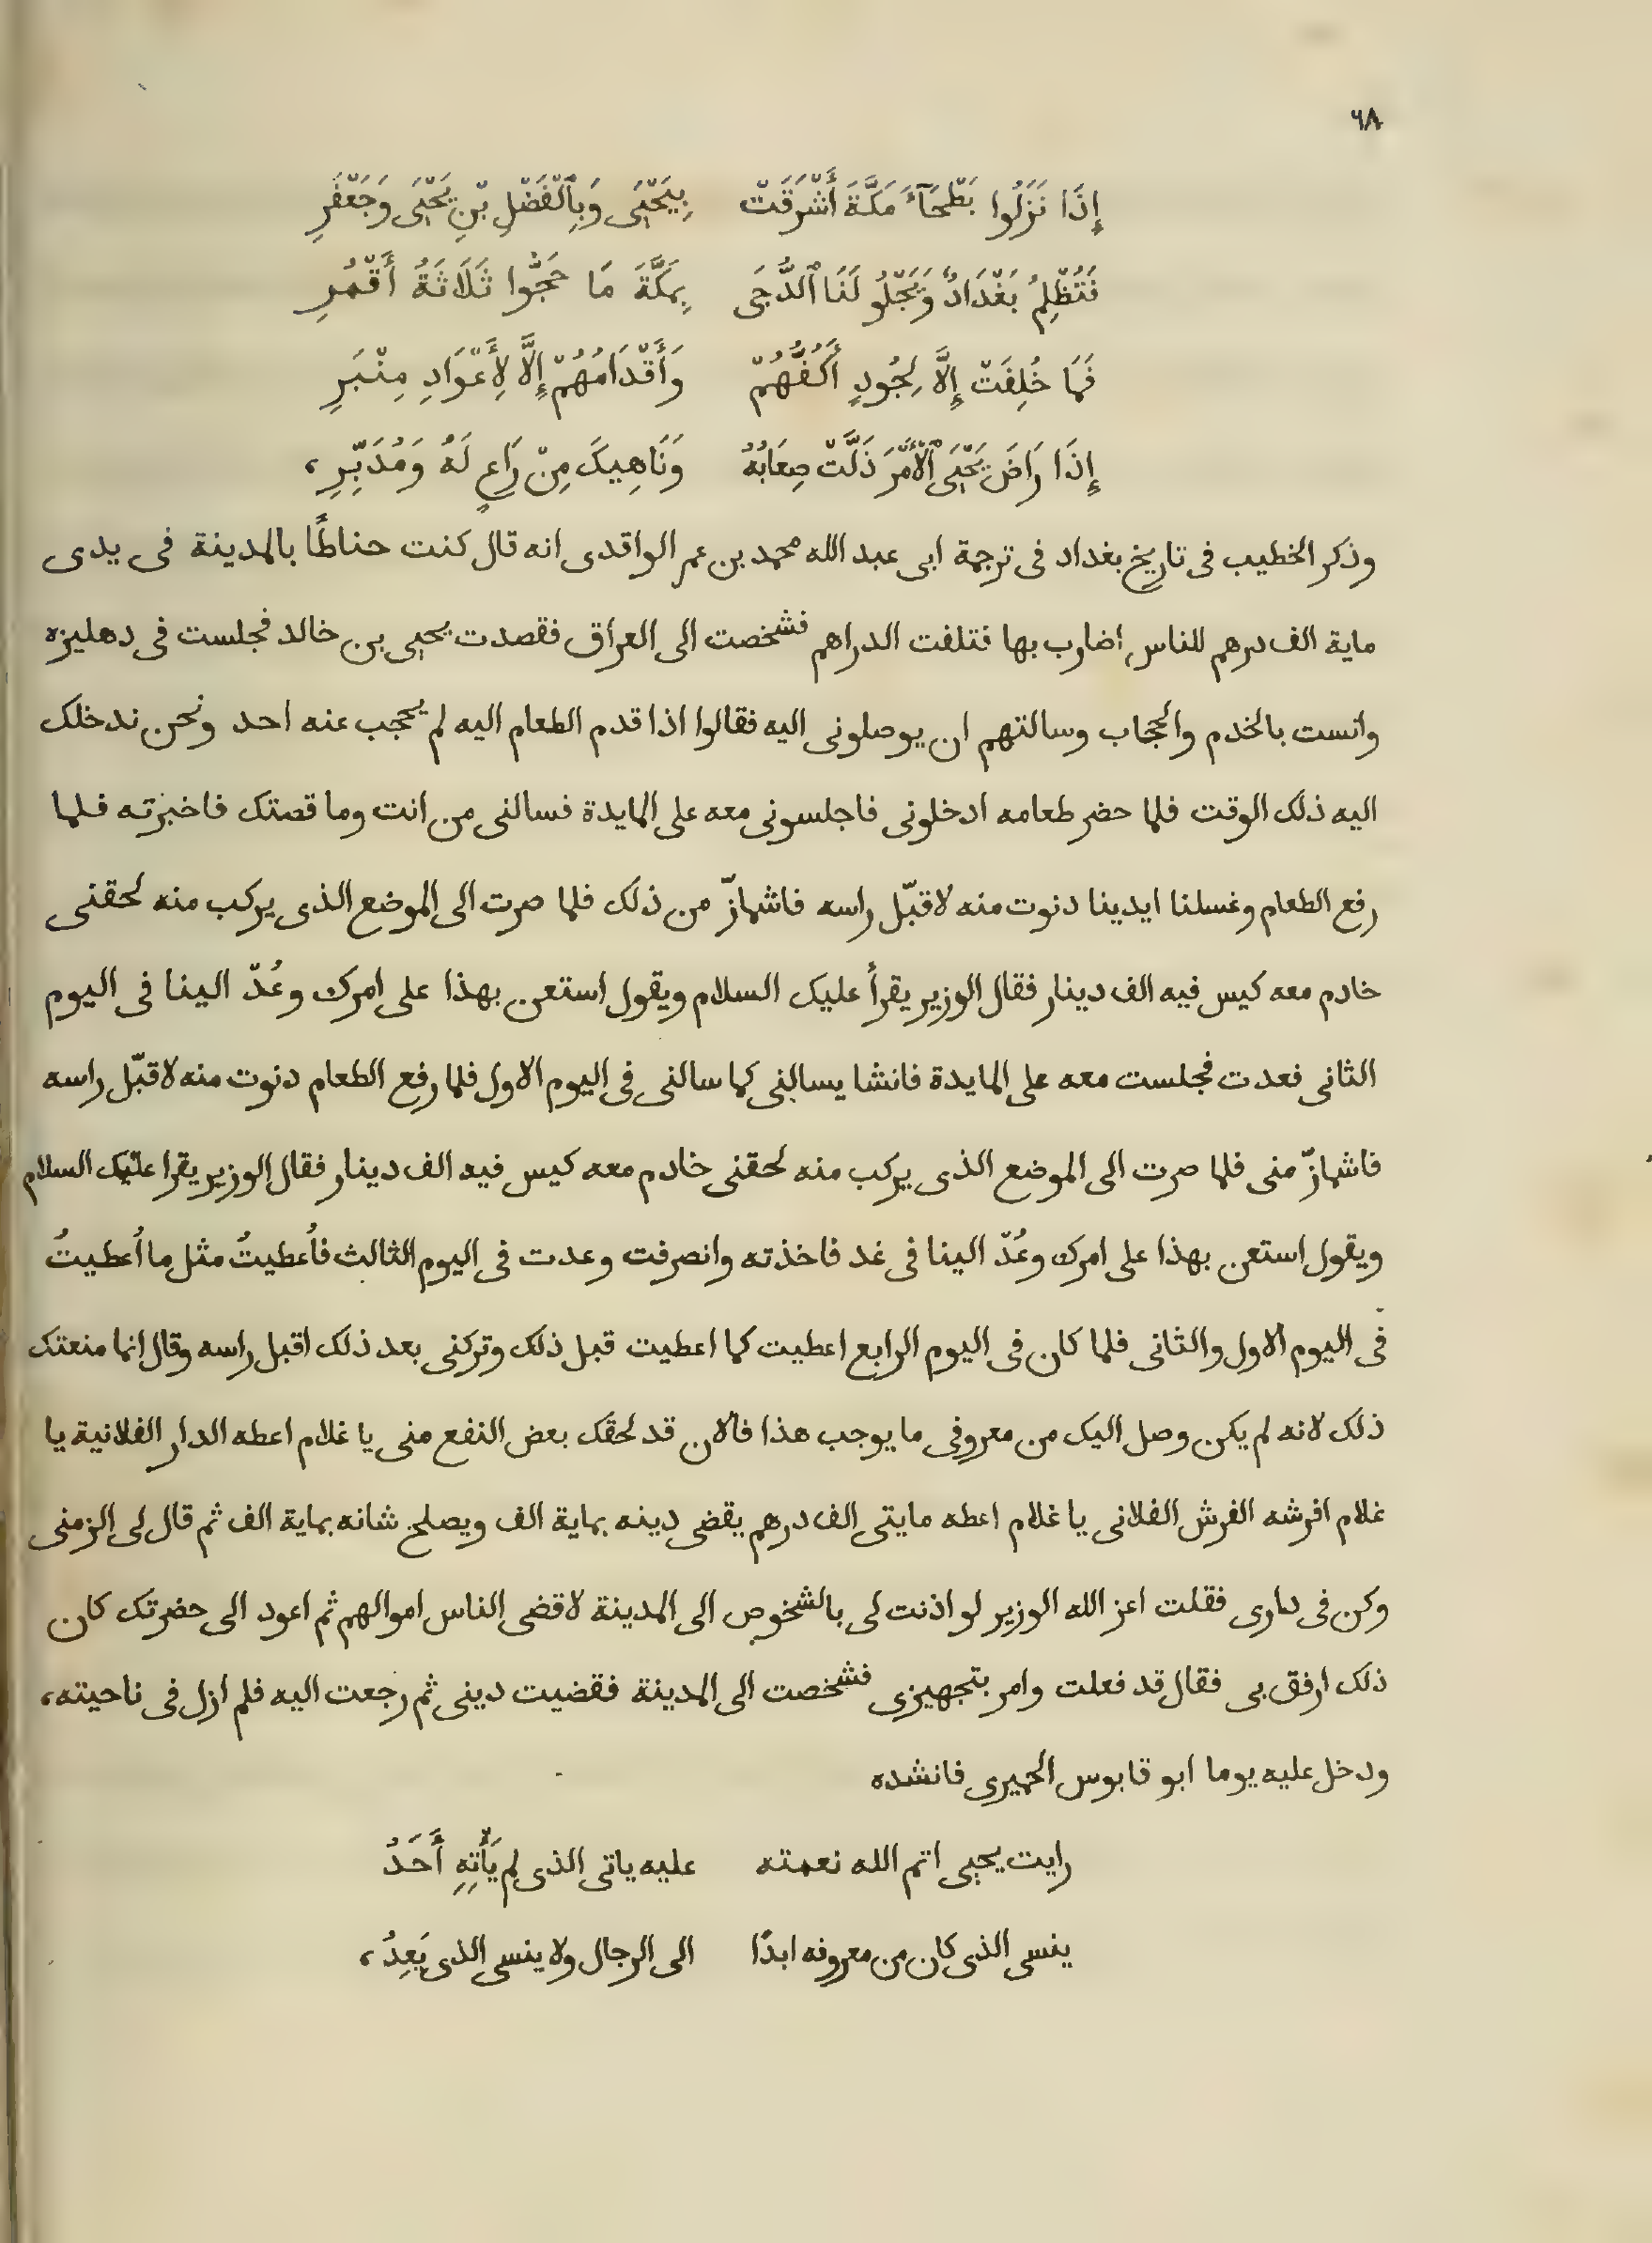 ٦٨
إِذَا نَزَلُوا بَطْحَآءَ مَكَّةَ أَشْرَقَتْ بِيَحْيَى وَبِٱلْفَضْلِ بْنِ يَحْيَى وَجَعْفَرِ
فَتُظْلِمُ بَغْدَادُ وَيَجْلُو لَنَا ٱلدُّجَى بِمَكَّةَ مَا حَجُّوا ثَلَاثَةُ أَقْمُرِ
فَمَا خُلِقَتْ إِلَّا لِجُودٍ أَكُفُّهُمْ وَأَقْدَامُهُمْ إِلَّا لِأَعْوَادِ مِنْبَرِ
إِذَا رَاضَ يَحْيَى ٱلْأَمْرَ ذَلَّتْ صِعَابُهُ وَنَاهِيكَ مِنْ رَاعٍ لَهُ وَمُدَبِّرِ،
وذكر الخطيب فى تاريخ بغداد فى ترجمة ابى عبد الله محمد بن عمر الواقدى انه قال كنت حناطًا بالمدينة فى يدى
ماية الف درهم للناس اضارب بها فتلفت الدراهم فشخصت الى العراق فقصدت يحيى بن خالد فجلست فى دهليزه
وانست بالخدم والحجاب وسالتهم ان يوصلونى اليه فقالوا اذا قدم الطعام اليه لم يحجب عنه احد ونحن ندخلك
اليه ذلك الوقت فلما حضر طعامه ادخلونى فاجلسونى معه على المايدة فسالنى من انت وما قصتك فاخبرته فلما
رفع الطعام وغسلنا ايدينا دنوت منه لاقبّل راسه فاشمازّ من ذلك فلما صرت الى الموضع الذى يركب منه لحقنى
خادم معه كيس فيه الف دينار فقال الوزير يقرأ عليك السلام ويقول استعن بهذا على امرك وعُدّ الينا فى اليوم
الثانى فعدت فجلست معه على المايدة فانشا يسالنى كما سالنى فى اليوم الاول فلما رفع الطعام دنوت منه لاقبّل راسه
فاشمازّ منى فلما صرت الى الموضع الذى يركب منه لحقنى خادم معه كيس فيه الف دينار فقال الوزير يقرا عليك السلام
ويقول استعن بهذا على امرك وعُدّ الينا فى غد فاخذته وانصرفت وعدت فى اليوم الثالث فأُعطيتُ مثل ما أُعطيتُ
فى اليوم الاول والثانى فلما كان فى اليوم الرابع اعطيت كما اعطيت قبل ذلك وتركنى بعد ذلك اقبل راسه وقال انما منعتك
ذلك لانه لم يكن وصل اليك من معروفى ما يوجب هذا فالان قد لحقك بعض النفع منى يا غلام اعطه الدار الفلانية يا
غلام افرشه الفرش الفلانى يا غلام اعطه مايتى الف درهم يقضى دينه بماية الف ويصلح شانه بماية الف ثم قال لى الزمنى
وكن فى دارى فقلت اعز الله الوزير لو اذنت لى بالشخوص الى المدينة لاقضى الناس اموالهم ثم اعود الى حضرتك كان
ذلك ارفق بى فقال قد فعلت وامر بتجهيزى فشخصت الى المدينة فقضيت دينى ثم رجعت اليه فلم ازل فى ناحيته،
ودخل عليه يوما ابو قابوس الحميرى فانشده
رايت يحيى اتم الله نعمته عليه ياتى الذى لم يَأْتِهِ أَحَدُ
ينسى الذى كان من معروفه ابدًا الى الرجال ولا ينسى الذى يَعِدُ،